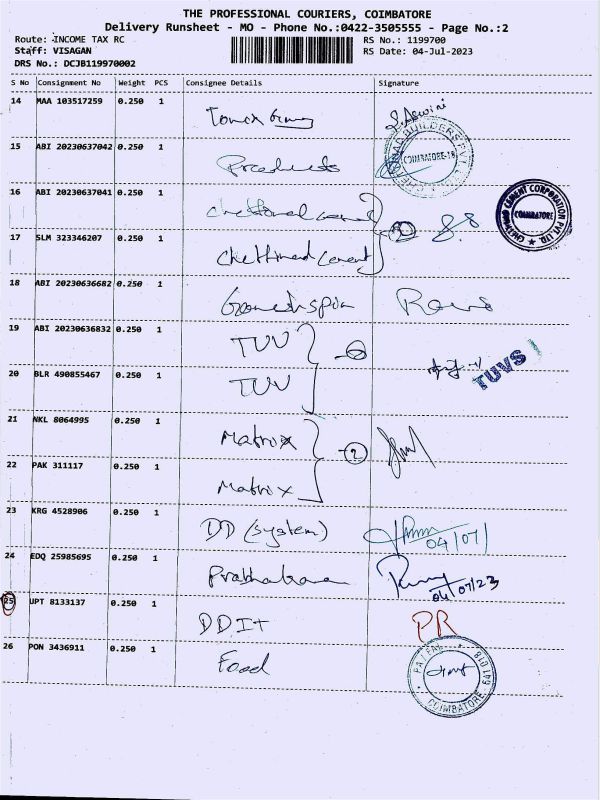 THE PROFESSIONAL COURIERS, COIMBATORE
Delivery Runsheet - MO - Phone No.:0422-3505555 - Page No.:2
Route: INCOME TAX RC RS No.: 1199700
Staff: VISAGAN RS Date: 04-Jul-2023
DRS No.: DCJB119970002
S No Consignment No Weight PCS Consignee Details Signature
14 MAA 103517259 0.250 1 S. Aswini
15 ABI 20230637042 0.250 1 Products BUILDERS PVT. COIMBATORE-18
16 ABI 20230637041 0.250 1 Chettinad cement CEMENT CORPORATION PVT. LTD. COIMBATORE
17 SLM 323346207 0.250 1 Chettinad cement
18 ABI 20230636682 0.250 1 Ganeshspin
19 ABI 20230636832 0.250 1 TUV
20 BLR 490855467 0.250 1 TUV TUVS
21 NKL 8064995 0.250 1 Matrix 2
22 PAK 311117 0.250 1 Matrix
23 KRG 4528906 0.250 1 DD (system) 04/07/
24 EDQ 25985695 0.250 1 Prabhakaran 04/07/23
25 UPT 8133137 0.250 1 DDIT PR
26 PON 3436911 0.250 1 Food COIMBATORE 641 018